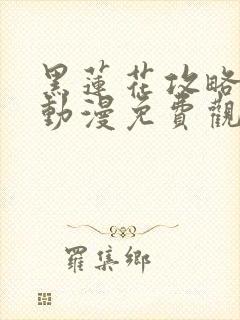 黑蓮花攻略
動漫免費觀
羅集鄉